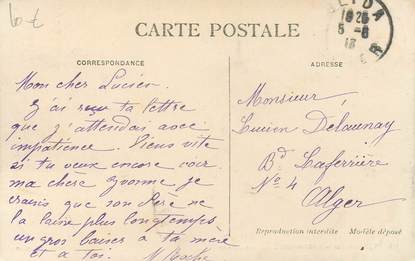 10 €
CARTE POSTALE
CORRESPONDANCE
Mon cher Lucien.
J'ai reçu ta lettre
que j'attendais avec
impatience. Viens vite
si tu veux encore voir
ma chère Yvonne je
crains que son père ne
la laisse plus longtemps
un gros baiser à ta mère
et a toi.
BLIDA
5 -8
13
ADRESSE
Monsieur
Lucien Delaunay
Bd Laferrière
No 4
Alger
Reproduction interdite Modèle déposé